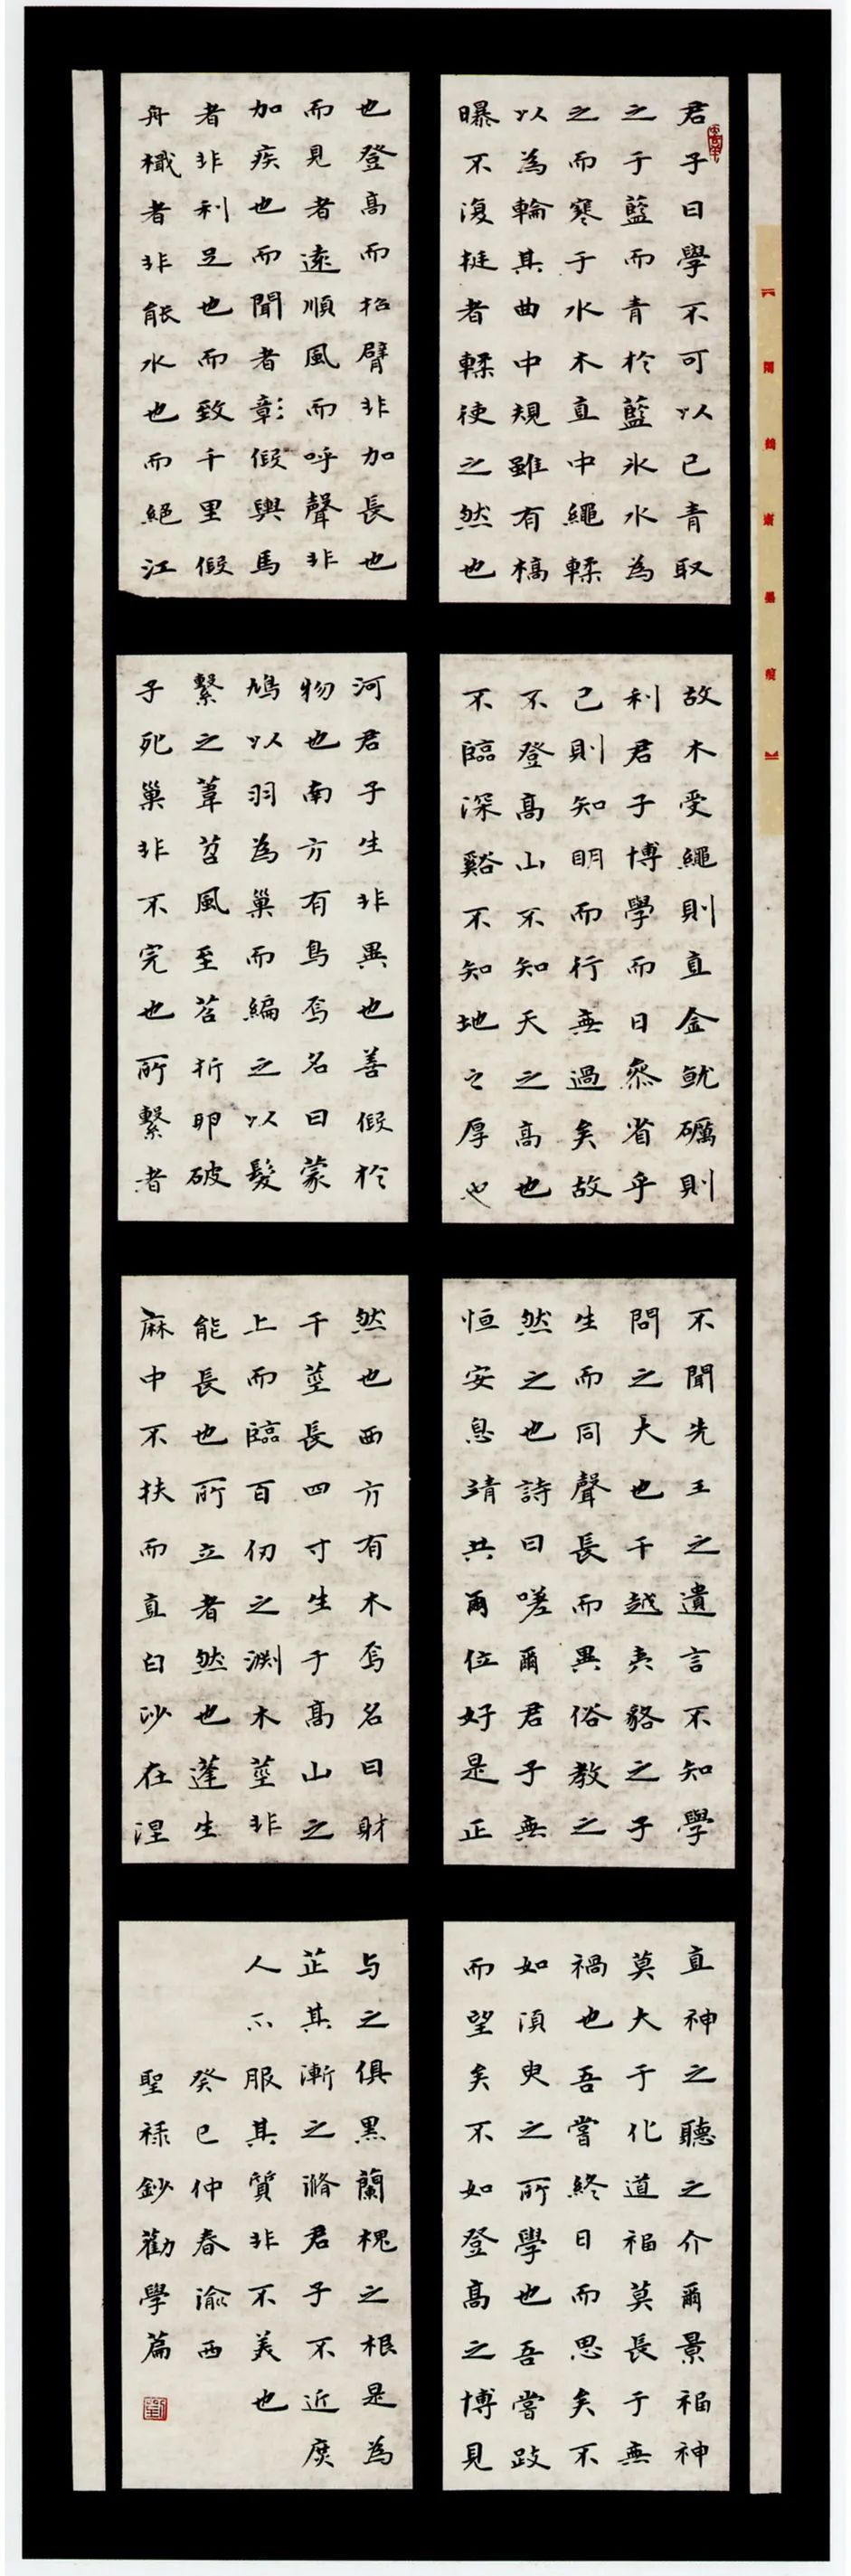 君子曰學不可以已青取
之于藍而青於藍冰水為
之而寒于水木直中繩輮
以為輪其曲中規雖有槁
曝不復挺者輮使之然也
故木受繩則直金就礪則
利君子博學而日參省乎
己則知明而行無過矣故
不登高山不知天之高也
不臨深谿不知地之厚也
不聞先王之遺言不知學
問之大也干越夷貉之子
生而同聲長而異俗教之
然之也詩曰嗟爾君子無
恒安息靖共爾位好是正
直神之聽之介爾景福神
莫大于化道福莫長于無
禍也吾嘗終日而思矣不
如須臾之所學也吾嘗跂
而望矣不如登高之博見
也登高而招臂非加長也
而見者遠順風而呼聲非
加疾也而聞者彰假輿馬
者非利足也而致千里假
舟檝者非能水也而絕江
河君子生非異也善假於
物也南方有鳥焉名曰蒙
鳩以羽為巢而編之以髮
繫之葦苕風至苕折卵破
子死巢非不完也所繫者
然也西方有木焉名曰射
干莖長四寸生于高山之
上而臨百仞之淵木莖非
能長也所立者然也蓬生
麻中不扶而直白沙在涅
与之俱黑蘭槐之根是為
芷其漸之滫君子不近庶
人不服其質非不美也
癸巳仲春渝西
聖祿鈔勸學篇
劉